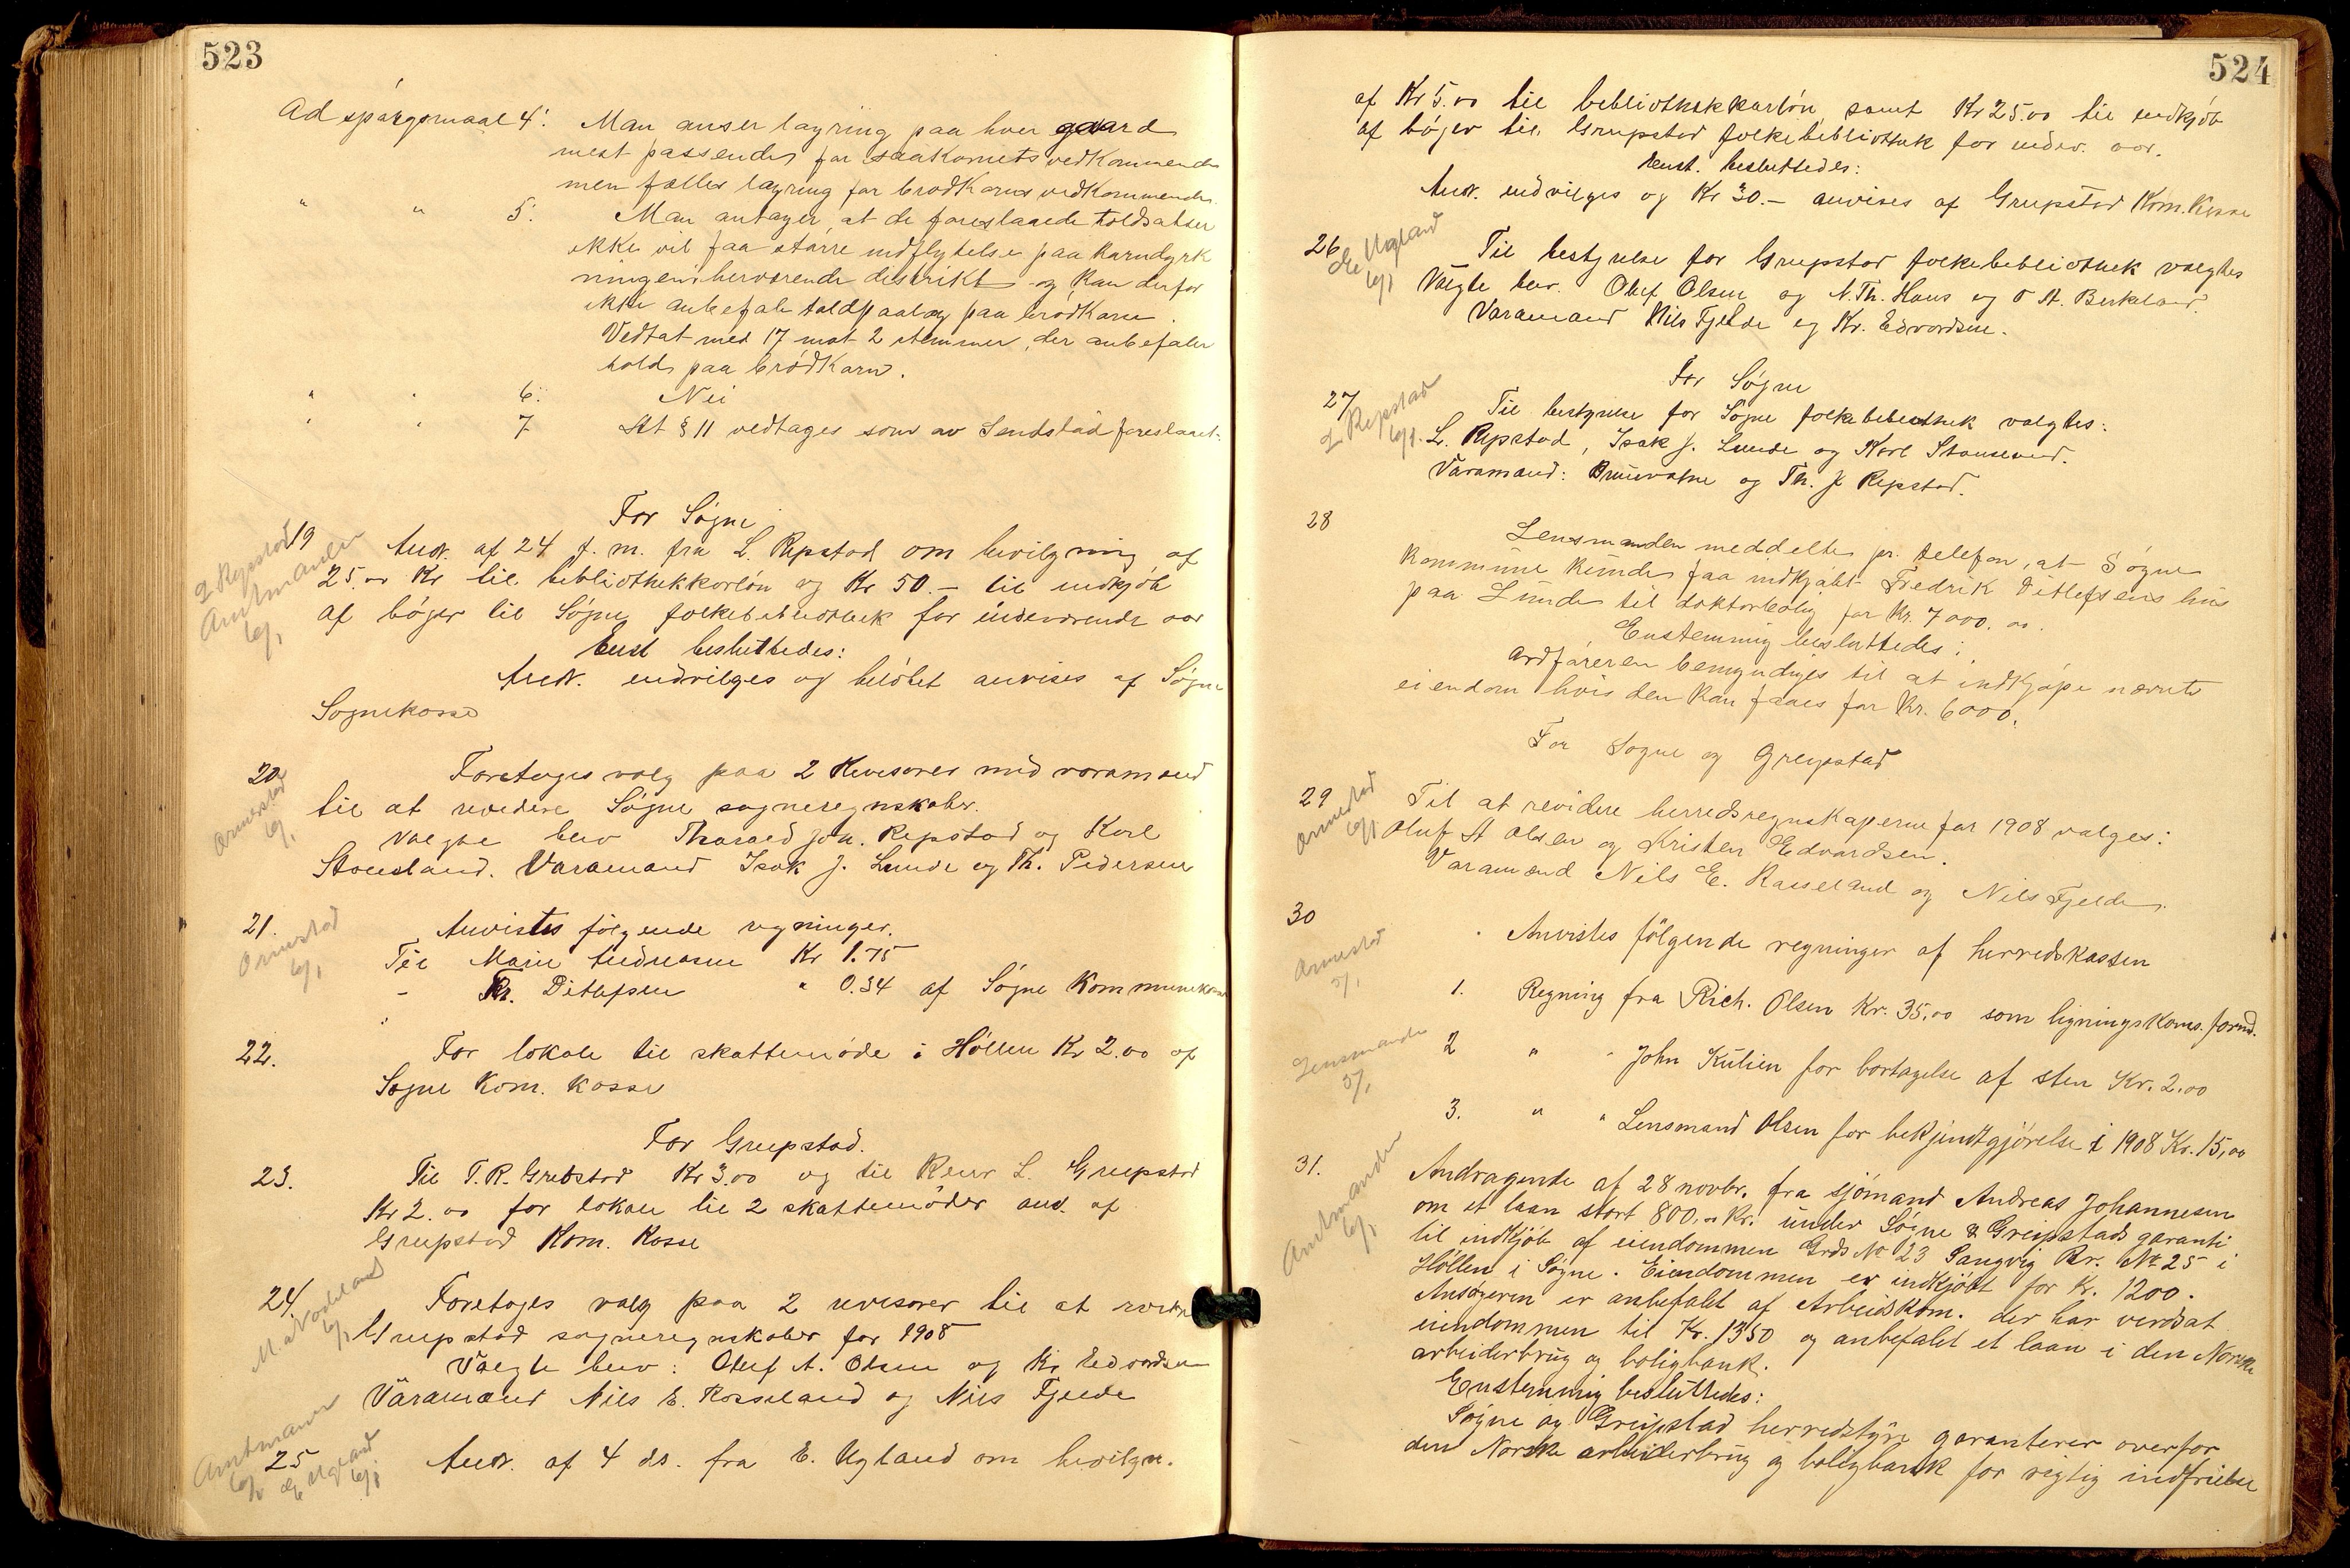 523
Ad spørgsmaal 4: Man anser lagring paa hver gaard
mest passende for saakornets vedkommende
men fælles lagring for brødkorns vedkommende.
" " 5: Man antager, at de foreslaaede toldsatser
ikke vil faa større indflytelse paa korndyrk
ningen i herværende distrikt og kan derfor
ikke anbefale toldpaalæg paa brødkorn.
Vedtat med 17 mot 2 stemmer, der anbefaler
told paa brødkorn.
" " 6: Nei
" " 7 At § 11 vedtages som av Sendstad foreslaaet.
For Søgne
19 Andr. af 24 f. m. fra L. Repstad om bevilgning af
L Repstad
Amtmanden
6/1
25.00 Kr til bibliothekkarløn og Kr 50.- til indkjøb
af bøger til Søgne folkebibliothek for indeværende aar
Enst besluttedes:
Andr. indvilges og beløbet anvises af Søgne
Sognekasse
20. Foretoges valg paa 2 Revisorer med varamænd
Ormestad
6/1
til at revidere Søgne sogneregnskaber.
Valgte blev Thorald Joh. Repstad og Karl
Stousland. Varamænd Isak J. Lunde og Th. Pedersen
21. Anvistes følgende regninger.
Ormestad
6/1
Til Marie Andreasen Kr 1.75
- Fr. Ditlefsen " 0.34 af Søgne Kommunekasse
22. For lokale til skattemøde i Høllen Kr 2.00 af
Søgne Kom. kasse
For Greipstad.
23. Til T. R. Grebstad Kr 3.00 og til L. Greipstad
Kr 2.00 for lokale til 2 skattemøder anv. af
Greipstad Kom. Kasse
24. Foretoges valg paa 2 revisorer til at revidere
6/1
Greipstad sogneregnskaber for 1908
Valgte blev: Oluf A. Olsen og Kr Edvardsen
Varamænd Nils E. Rosseland og Nils Fjelde
Amtmanden
6/1
25 Andr. af 4 ds. fra E. Ugland om bevilgn.
E Ugland
6/1
524
af Kr 5.00 til bibliothekkarløn samt Kr 25.00 til indkjøb
af bøger til Greipstad folkebibliothek for indev. aar.
Enst. besluttedes:
Andr. indvilges og Kr 30.- anvises af Greipstad Kom. Kasse
26 Til bestyrelse for Greipstad folkebibliothek valgtes
E Ugland
6/1
Valgte blev Oluf Olsen og N. Th. Haus og O A. Berkeland.
Varamænd Nils Fjelde og Kr. Edvardsen.
For Søgne
27 Til bestyrelse for Søgne folkebibliothek valgtes:
L Repstad
6/1.
L. Repstad, Isak J. Lunde og Karl Stousland.
Varamænd: Bruvatne og Th. J. Repstad.
28 Lensmanden meddeltes pr. telefon, at Søgne
kommune kunde faa indkjøbt Fredrik Ditlefsens hus
paa Lunde til doktorbolig for Kr. 7000.00.
Enstemmig besluttedes:
Ordføreren bemyndiges til at indkjøpe nævnte
eiendom hvis den kan faaes for Kr. 6000.
For Søgne og Greipstad
29 Til at revidere herredsregnskaperne for 1908 valges:
Ormestad
6/1
Oluf A Olsen og Kristen Edvardsen.
Varamænd Nils E. Rosseland og Nils Fjelde.
30 Anvistes følgende regninger af herredskassen
Ormestad
5/1
1. Regning fra Rich. Olsen Kr. 35.00 som ligningskoms. formd.
Lensmanden
5/1
2 " " John Kulien for bortagelse af sten Kr. 2.00
3. " " Lensmand Olsen for bekjendtgjørelse i 1908 Kr. 15,00
31. Andragende af 28 novbr. fra sjømand Andreas Johannesen
Amtmanden
6/1
om et laan stort 800.00 Kr. under Søgne & Greipstads garanti
til indkjøb af eiendommen Grds No 23 Langvig Br. No 25 i
Høllen i Søgne. Eiendommen er indkjøbt for Kr. 1200.
Ansøgeren er anbefalet af Arbeidskom. der har verdsat
eiendommen til Kr. 1350 og anbefalet et laan i den Norske
arbeiderbrug og boligbank.
Enstemmig besluttedes:
Søgne og Greipstad herredstyre garanterer overfor
den Norske arbeiderbrug og boligbank for rigtig indfrielse